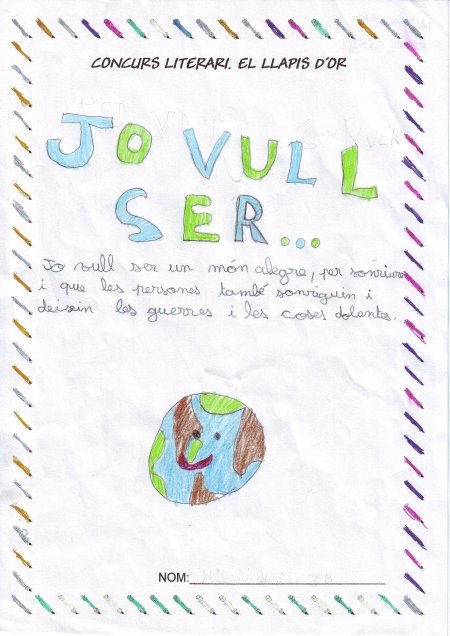 CONCURS LITERARI. EL LLAPIS D'OR
JO VULL
SER...
Jo vull ser un món alegre, per somriure
i que les persones també somriguin i
deixin les guerres i les coses dolentes.
NOM: